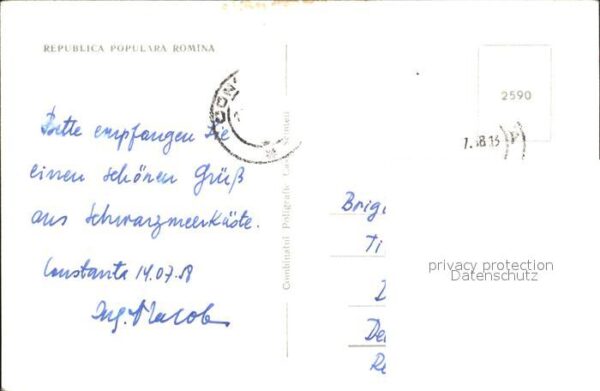 REPUBLICA POPULARA ROMINA
2590
Bitte empfangen Sie
einen schönen Grüß
aus Schwarzmeerküste.
Constanta 14.07.58
Ing.
Combinatul Poligrafic Casa Scînteii
CON
7. 58 13
Brig
Ti
D
De
Re
privacy protection
Datenschutz